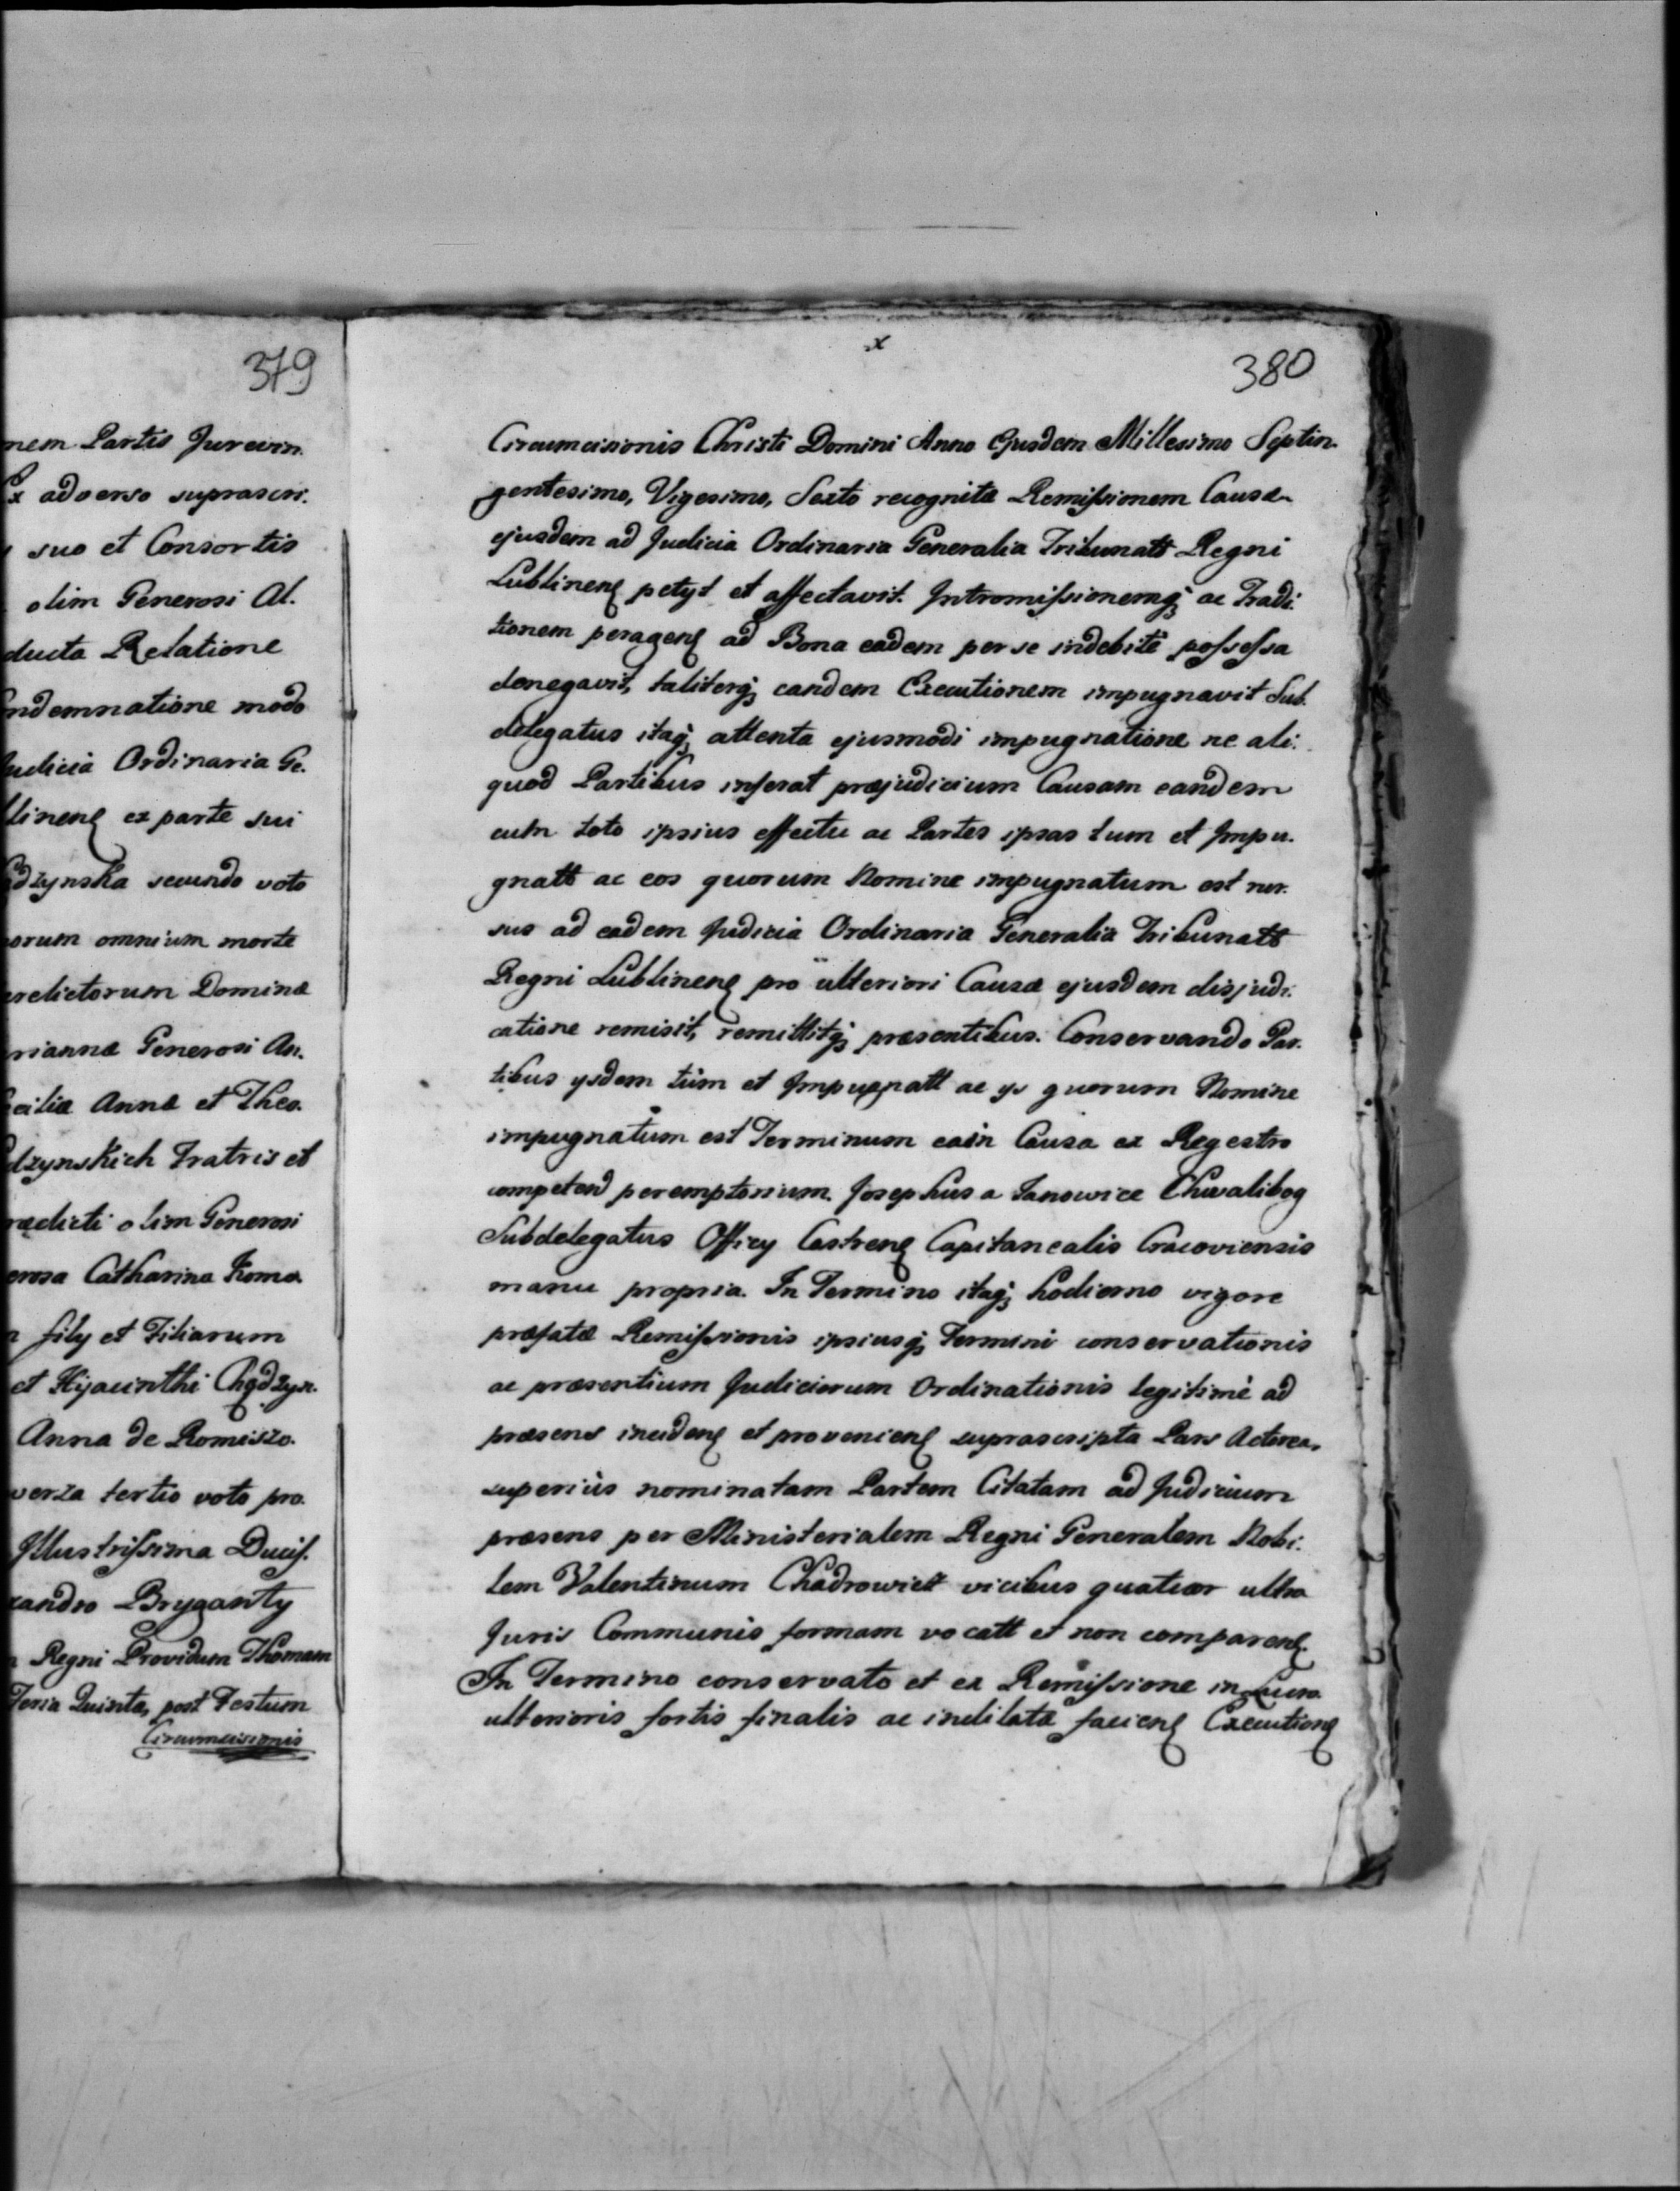 379
nem Partis Jurevin.
Ex adverso suprascri.
suo et Consortis
olim Generosi Al.
ducta Relatione
ndemnatione modo
Judicia Ordinaria Ge.
blinenę ex parte sui
dzynska secundo voto
orum omnium morte
erelictorum Dominæ
rianna Generosi An.
ciliæ Annæ et Theo.
dzynskich Fratris et
rædicti olim Generosi
erosa Catharina Koma.
fily et Filiarum
et Hyacinthi Chądzyn.
Anna de Romiszo.
werza tertio voto pro.
Illustrissima Ducis.
xandro Bryganty
Regni Providum Thomam
Feria Quinta, post Festum
Circumcisionis
x
380
Circumcisionis Christi Domini Anno Ejusdem Millesimo Septin.
gentesimo, Vigesimo, Sexto recognitæ Remissionem Causæ
ejusdem ad Judicia Ordinaria Generalia Tribunatt Regni
Lublinenę petyt et affectavit. Intromissionemqꝫ ac Tradi.
tionem peragenę ad Bona eadem per se indebitè possessa
denegavit, taliterqꝫ eandem Executionem impugnavit Sub.
delegatus itaqꝫ attenta ejusmodi impugnatione ne ali.
quod Partibus inferat præjudicium Causam eandem
cum toto ipsius effectu ac Partes ipsas tum et Impu.
gnatt ac eos quorum Nomine impugnatum est rur.
sus ad eadem Judicia Ordinaria Generalia Tribunatt
Regni Lublinenę pro ulteriori Causæ ejusdem disjudi.
catione remisit, remittitqꝫ præsentibus. Conservando Par.
tibus ysdem tùm et Impugnatt ac ys quorum Nomine
impugnatum est Terminum eain Causa ex Regestro
competend peremptorium. Josephus a Janowice Chwalibog
Subdelegatus Officy Castrenę Capitanealis Cracoviensis
manu propria. In Termino itaqꝫ hodierno vigore
præfatæ Remissionis ipsiusqꝫ Termini conservationis
ac præsentium Judiciorum Ordinationis legitimè ad
præsens incidenę et provenienę suprascripta Pars Actorea,
superiùs nominatam Partem Citatam ad Judicium
præsens per Ministerialem Regni Generalem Nobi.
lem Valentinum Chądrowicz vicibus quatuor ultra
Juris Communis formam vocatt et non comparenę.
In Termino conservato et ex Remissione in Luro.
ulterioris fortis finalis ac indilatæ facienę Executionę